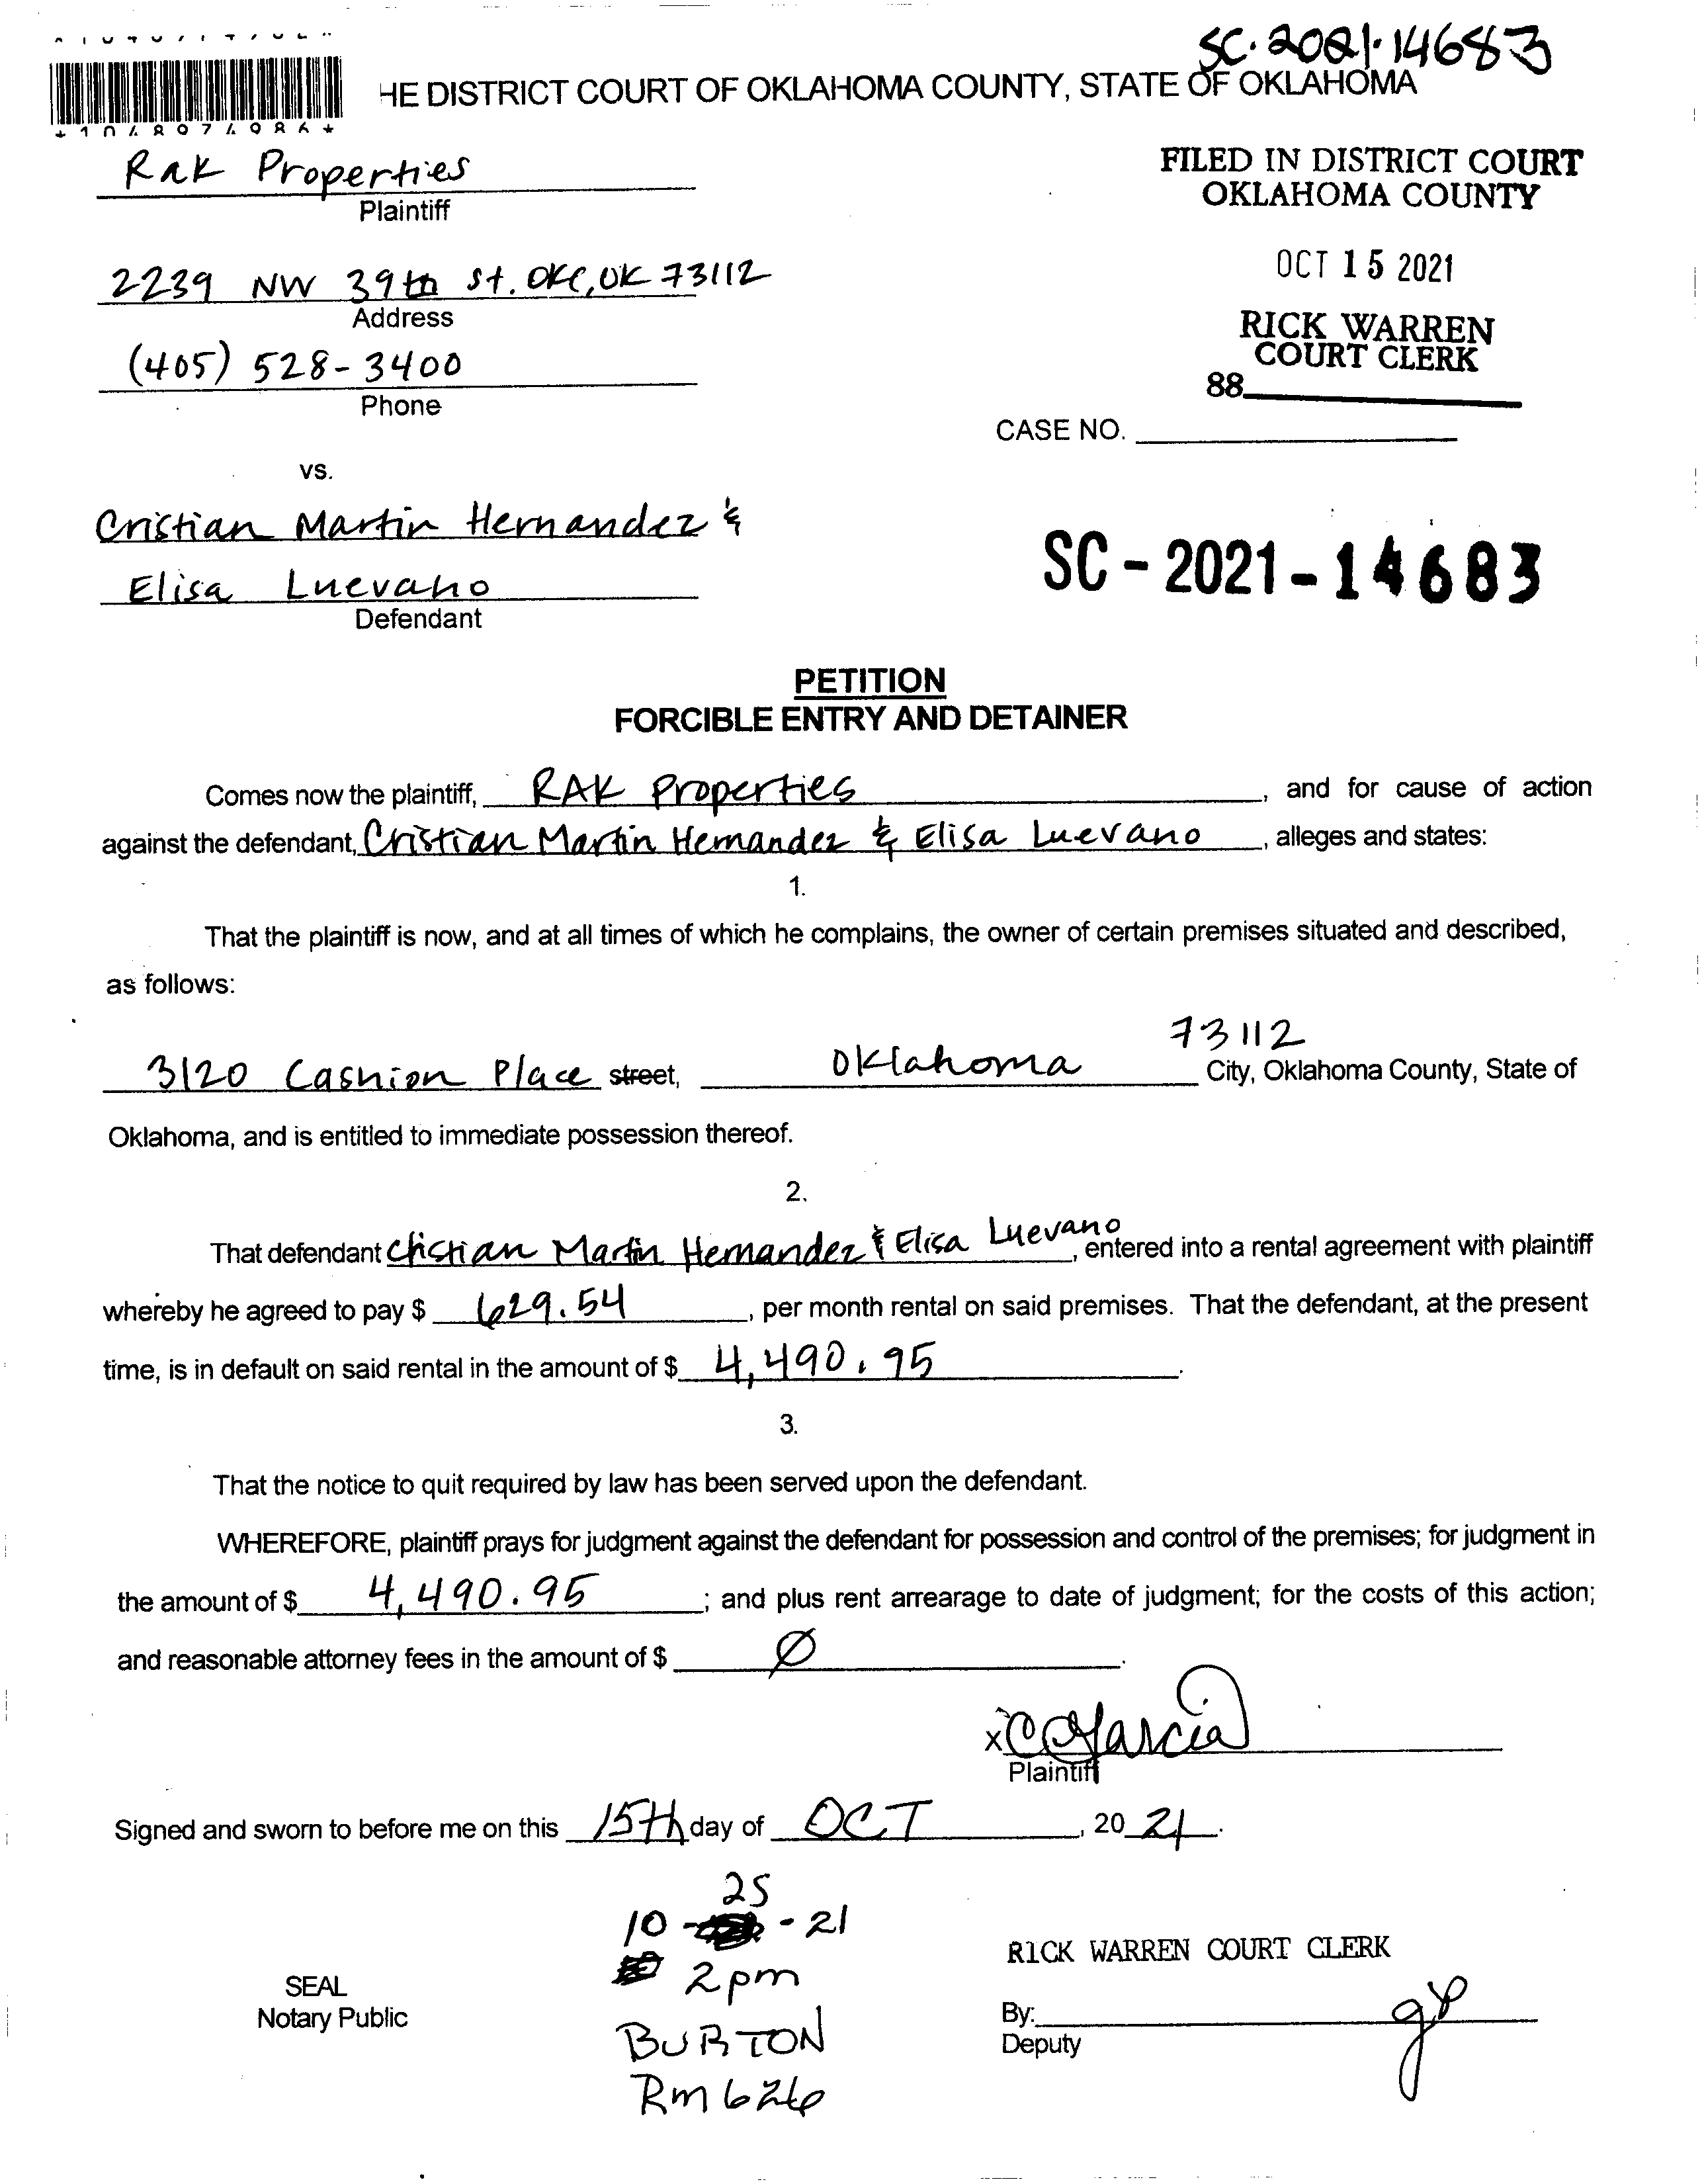 SC-2021-14683
HE DISTRICT COURT OF OKLAHOMA COUNTY, STATE OF OKLAHOMA
Rak Properties
Plaintiff
FILED IN DISTRICT COURT
OKLAHOMA COUNTY
2239 NW 39th St. OKC, OK 73112
Address
OCT 15 2021
(405) 528-3400
Phone
RICK WARREN
COURT CLERK
88
CASE NO.
vs.
Cristian Martin Hernandez &
Elisa Luevano
Defendant
SC-2021-14683
PETITION
FORCIBLE ENTRY AND DETAINER
Comes now the plaintiff, RAK Properties, and for cause of action
against the defendant, Cristian Martin Hernandez & Elisa Luevano, alleges and states:
1.
That the plaintiff is now, and at all times of which he complains, the owner of certain premises situated and described,
as follows:
73112
3120 Cashion Place street, Oklahoma City, Oklahoma County, State of
Oklahoma, and is entitled to immediate possession thereof.
2.
That defendant Chistian Martin Hernandez & Elisa Luevano, entered into a rental agreement with plaintiff
whereby he agreed to pay $ 629.54, per month rental on said premises. That the defendant, at the present
time, is in default on said rental in the amount of $ 4,490.95.
3.
That the notice to quit required by law has been served upon the defendant.
WHEREFORE, plaintiff prays for judgment against the defendant for possession and control of the premises; for judgment in
the amount of $ 4,490.95; and plus rent arrearage to date of judgment; for the costs of this action;
and reasonable attorney fees in the amount of $ Ø.
x CGarcia
Plaintiff
Signed and sworn to before me on this 15th day of OCT, 2021.
25
10- -21
2pm
BURTON
Rm 626
SEAL
Notary Public
RICK WARREN COURT CLERK
By:
Deputy